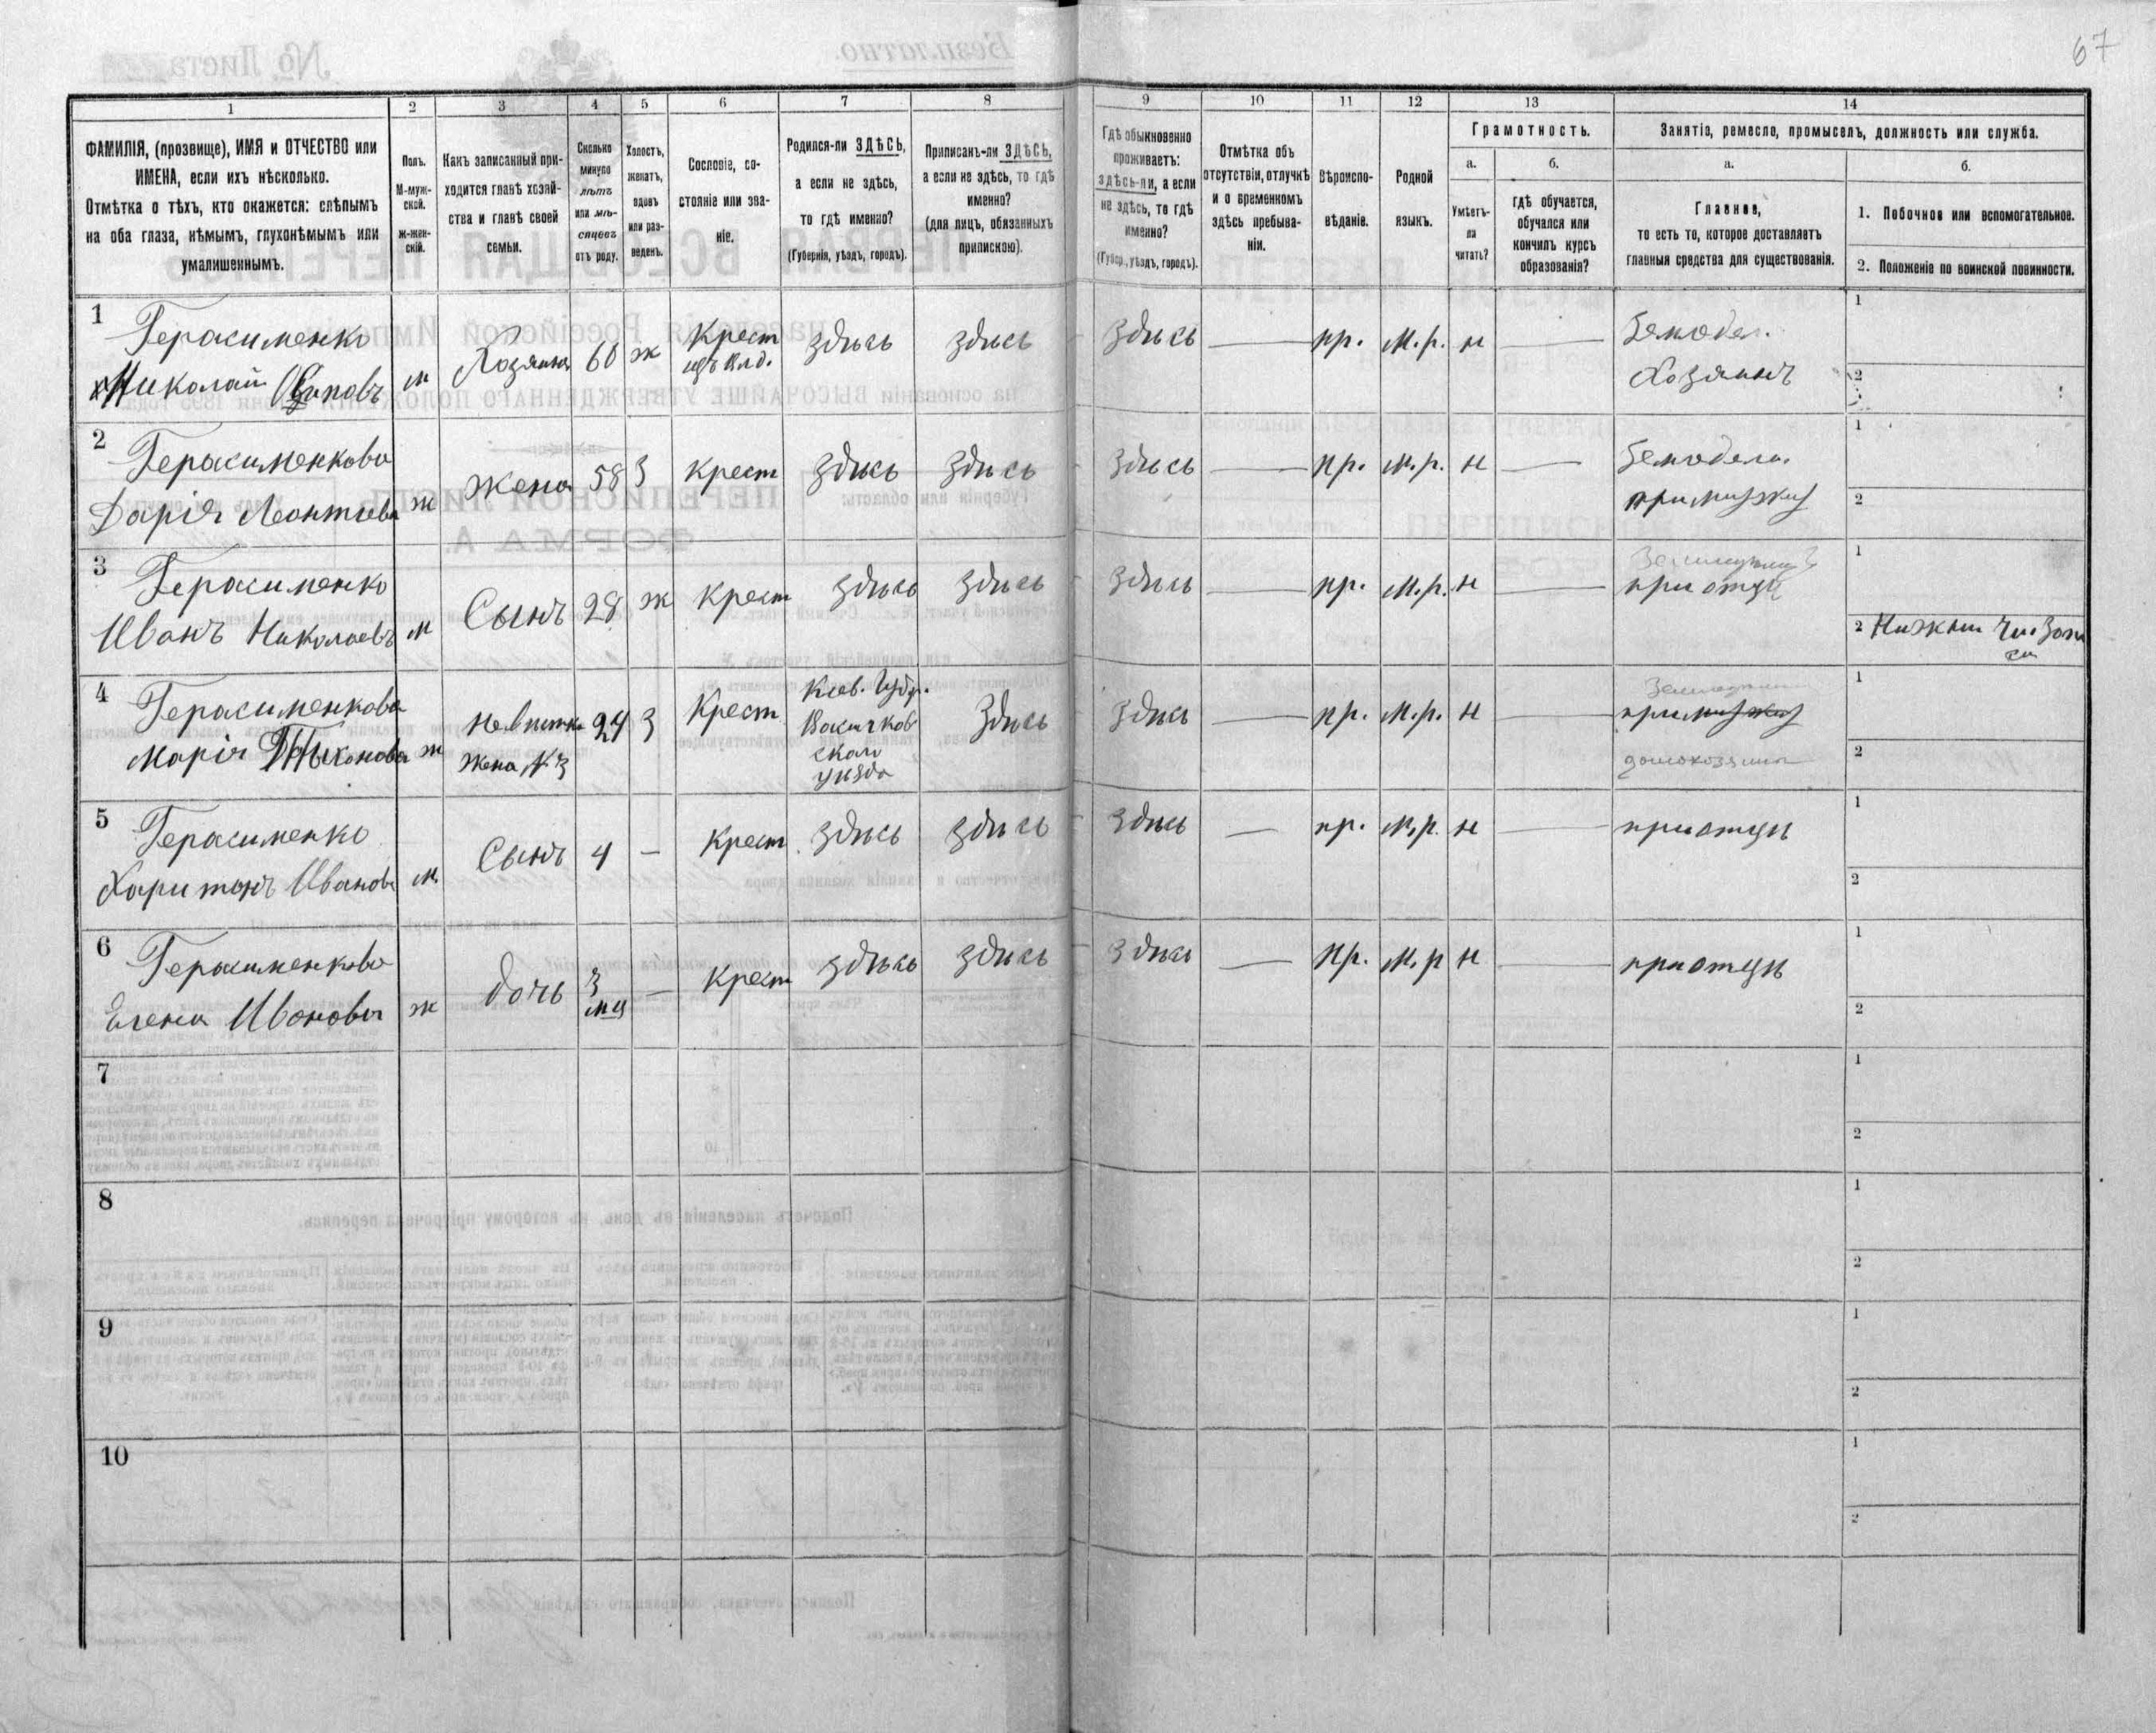 67
1 2 3 4 5 6 7 8 9 10 11 12 13 14
ФАМИЛІЯ, (прозвище), ИМЯ и ОТЧЕСТВО или
ИМЕНА, если ихъ нѣсколько.
Отмѣтка о тѣхъ, кто окажется: слѣпымъ
на оба глаза, нѣмымъ, глухонѣмымъ или
умалишеннымъ.
Полъ.
М-муж-
ской.
ж-жен-
скій.
Какъ записанный при-
ходится главѣ хозяй-
ства и главѣ своей
семьи.
Сколько
минуло
лѣтъ
или мѣ-
сяцевъ
отъ роду.
Холостъ,
женатъ,
вдовъ
или раз-
веденъ.
Сословіе, со-
стояніе или зва-
ніе.
Родился-ли ЗДѢСЬ,
а если не здѣсь,
то гдѣ именно?
(Губернія, уѣздъ, городъ).
Приписанъ-ли ЗДѢСЬ,
а если не здѣсь, то гдѣ
именно?
(для лицъ, обязанныхъ
припискою).
Гдѣ обыкновенно
проживаетъ:
здѣсь-ли, а если
не здѣсь, то гдѣ
именно?
(Губер., уѣздъ, городъ).
Отмѣтка объ
отсутствіи, отлучкѣ
и о временномъ
здѣсь пребыва-
ніи.
Вѣроиспо-
вѣданіе.
Родной
языкъ.
Грамотность.
а.
Умѣетъ-
ли
читать?
б.
гдѣ обучается,
обучался или
кончилъ курсъ
образованія?
Занятіе, ремесло, промыселъ, должность или служба.
а.
Главное,
то есть то, которое доставляетъ
главныя средства для существованія.
б.
1. Побочное или вспомогательное.
2. Положеніе по воинской повинности.
1
Герасименко
Николай Осиповъ
м
Хозяинъ
60
ж
Крест
здѣсь
здѣсь
здѣсь
пр.
м.р.
н
Земодел.
Хозяинъ
1
2
2
Герасименкова
Дарія Леонтіева
ж
жена
58
З
Крест
здѣсь
здѣсь
здѣсь
пр.
м.р.
н
Земодел.
при мужу
1
2
3
Герасименко
Иванъ Николаевъ
м
Сынъ
28
ж
Крест
здѣсь
здѣсь
здѣсь
пр.
м.р.
н
при отцу
1
2 Нижни чи.
4
Герасименкова
Марія
ж
невистка
жена №3
24
З
Крест
Кіев. Губ.
Васильков
скаго
уѣзда
здѣсь
здѣсь
пр.
м.р.
н
при мужу
1
2
5
Герасименко
Харитонъ Ивановъ
м
Сынъ
4
Крест
здѣсь
здѣсь
здѣсь
пр.
м.р.
н
при отцѣ
1
2
6
Герасименкова
Елена Иванова
ж
дочь
3
мц
Крест
здѣсь
здѣсь
здѣсь
пр.
м.р
н
при отцѣ
1
2
7
1
2
8
1
2
9
1
2
10
1
2